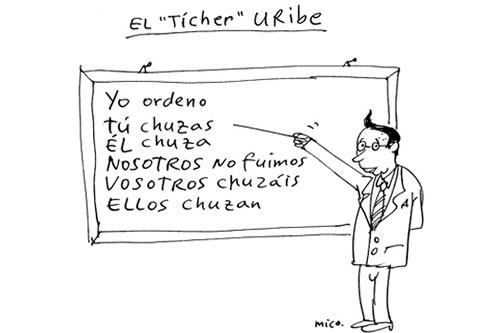 EL "Tícher" URibe
Yo ordeno
TÚ chuzas
ÉL chuza
NOSOTROS No fuimos
VOSOTROS chuzáis
ELLOS chuzan
mico.